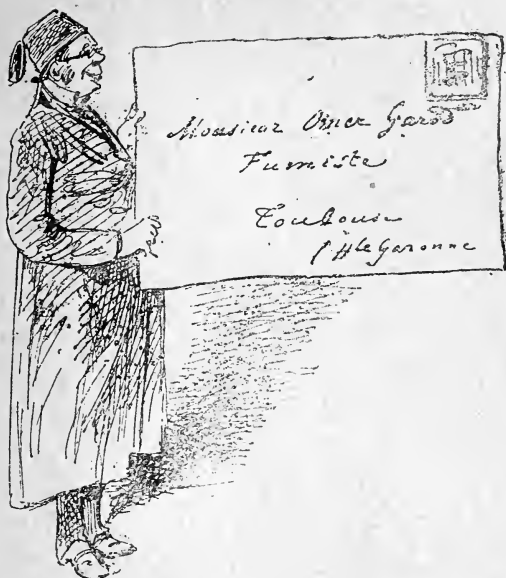 Monsieur Omer Garos
Fumiste
Toulouse
(Hte Garonne